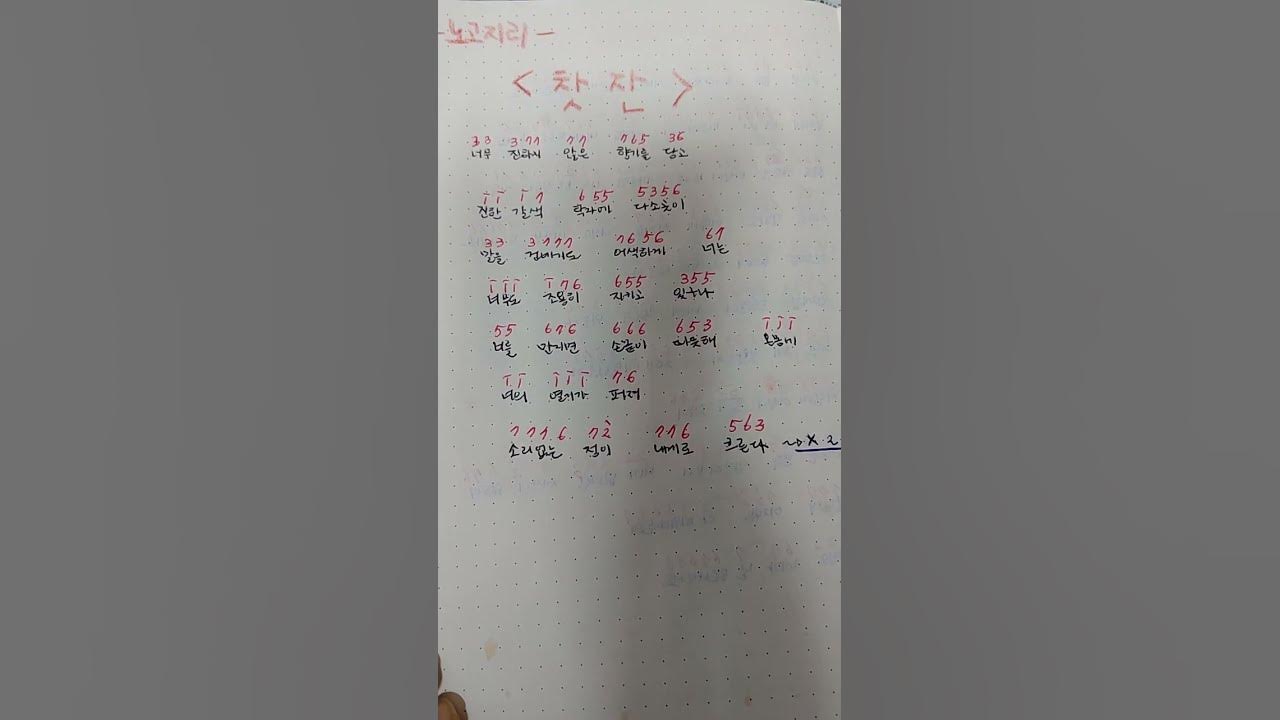 -노고지리-
<찻잔>
33 3·77 77 765 36
너무 진하지 않은 향기를 담고
i i i 7 655 5356
진한 갈색 탁자에 다소곳이
33 3777 7656 67
말을 건네기도 어색하게 너는
i i i i76 655 355
너무도 조용히 지키고 있구나
55 676 666 653 i i i
너를 만지면 손끝이 따뜻해 온몸에
i i i i i 76
너의 열기가 퍼져
777.6 72 776 563
소리없는 정이 내게로 흐른다 ~> X.2.